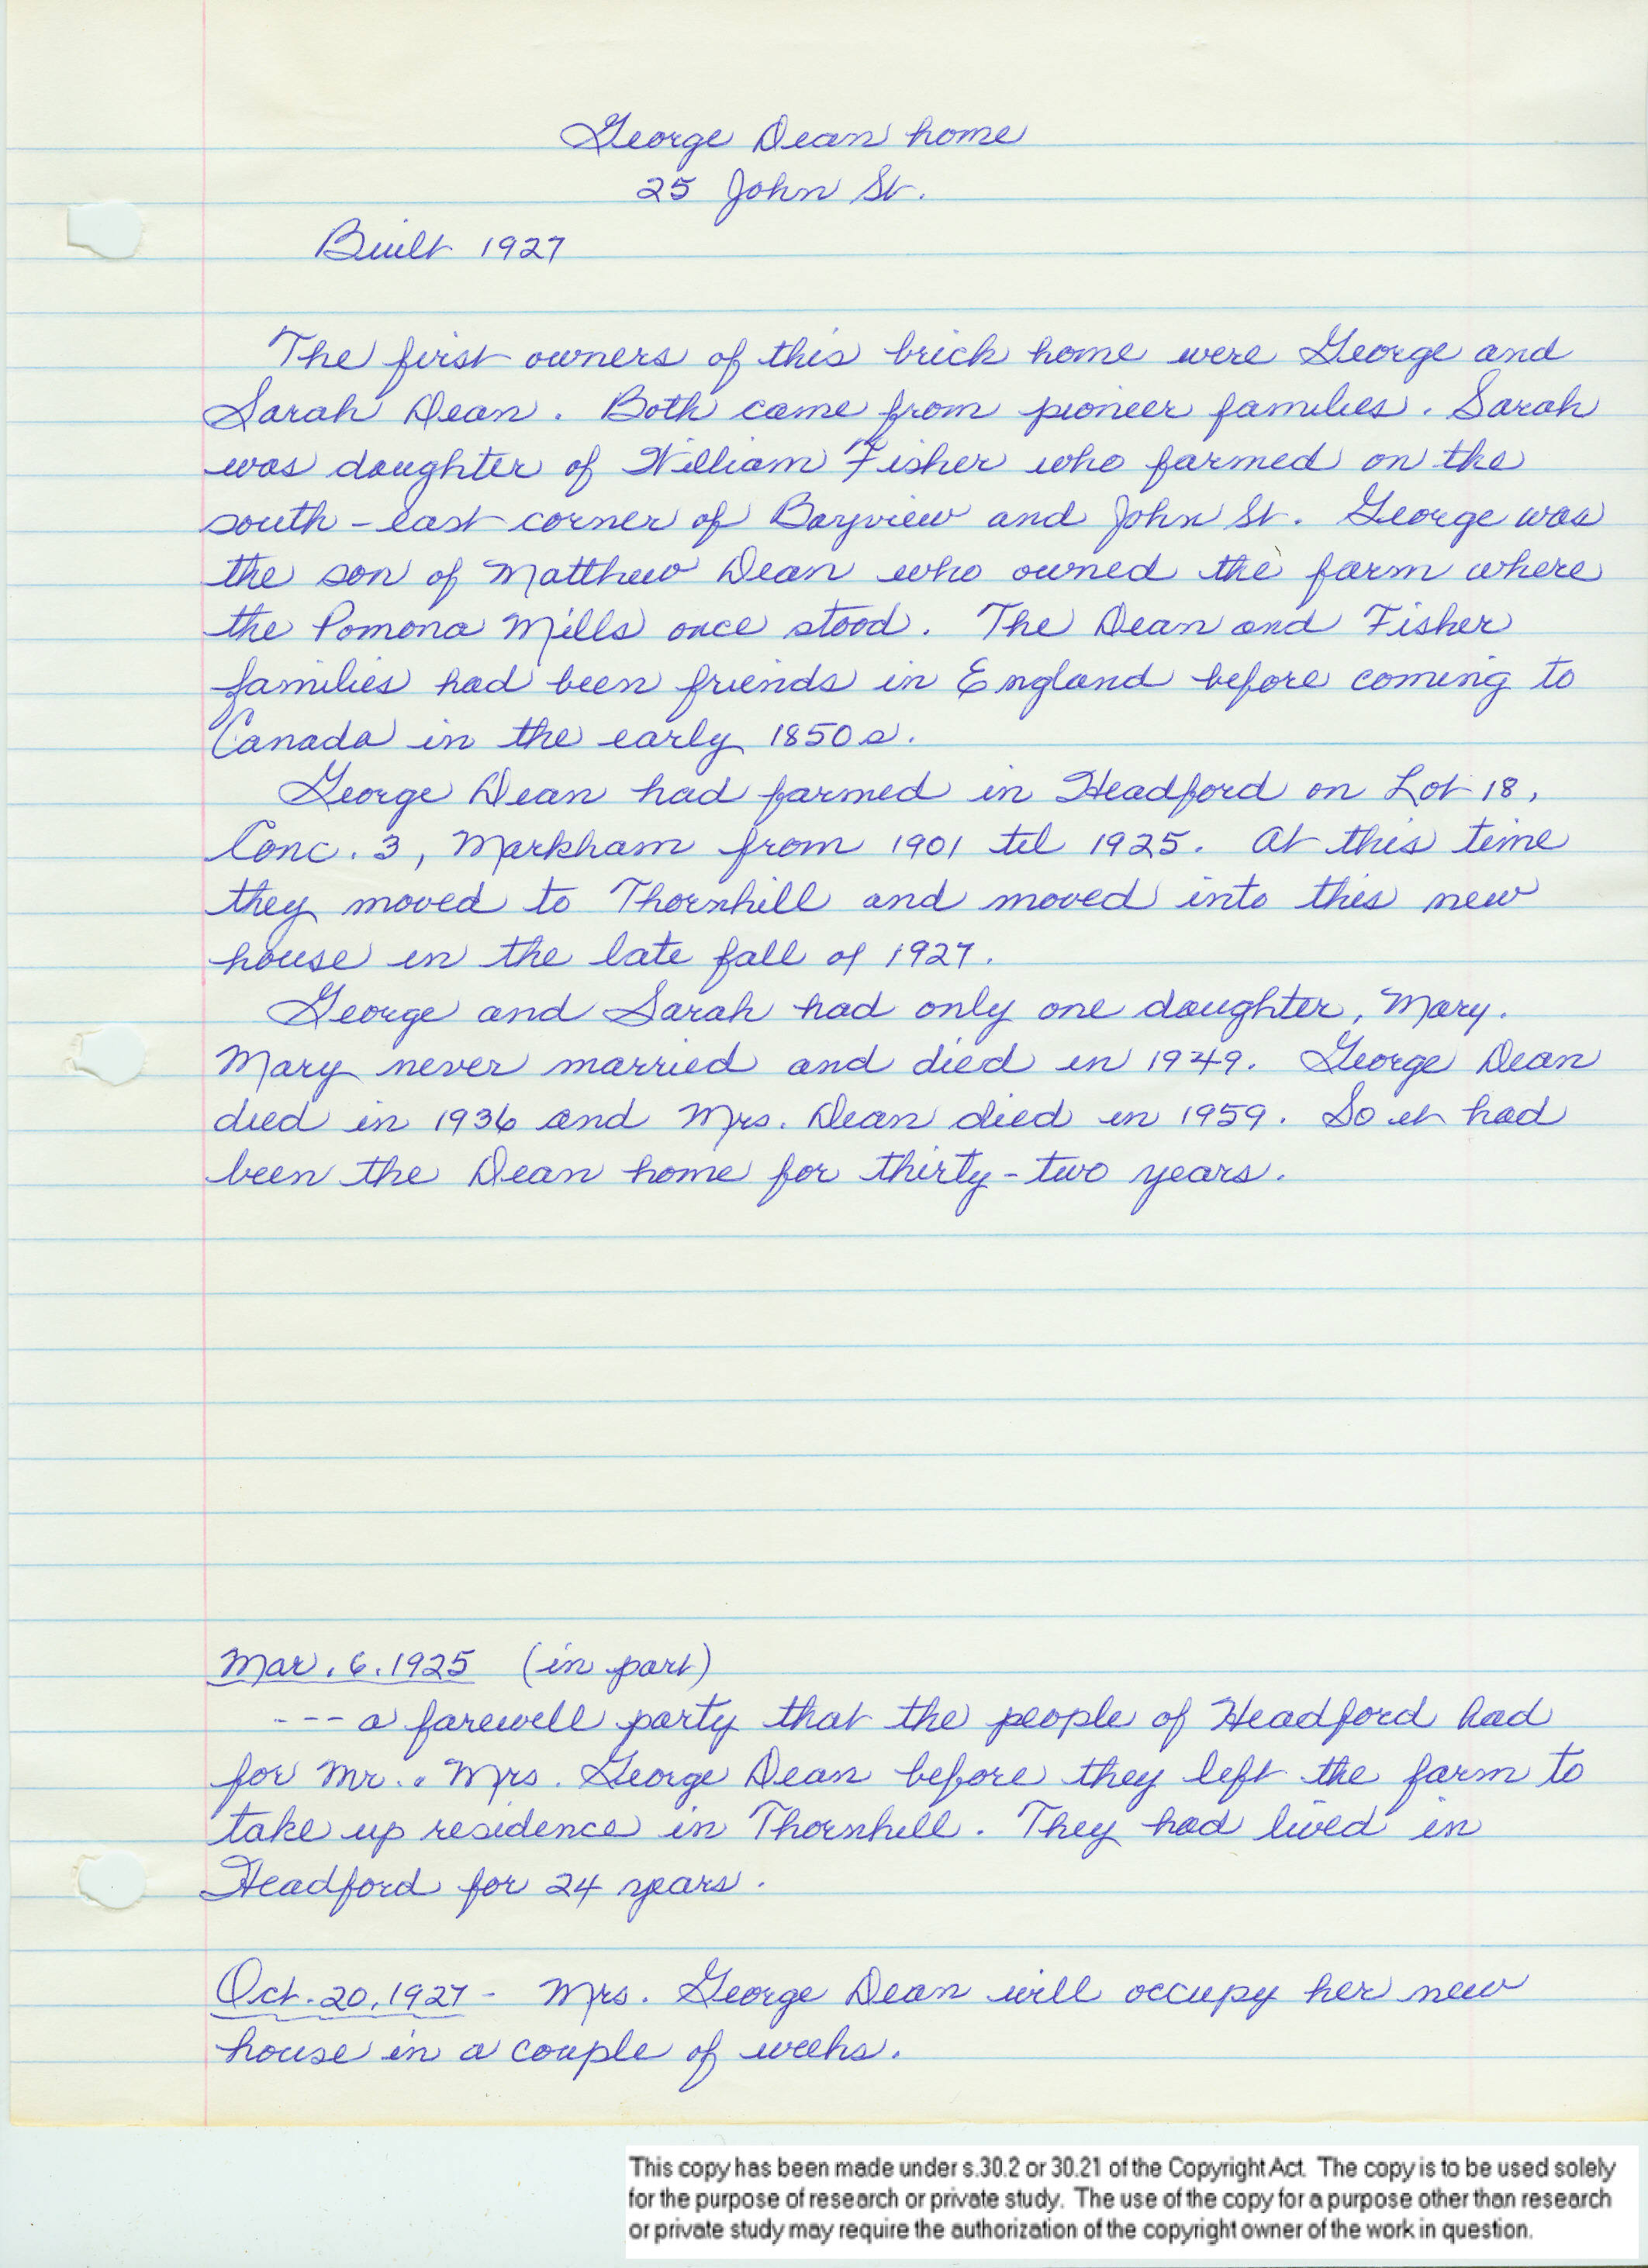 George Dean home
25 John St.
Built 1927
The first owners of this brick home were George and
Sarah Dean. Both came from pioneer families. Sarah
was daughter of William Fisher who farmed on the
south-east corner of Bayview and John St. George was
the son of Matthew Dean who owned the farm where
the Pomona Mills once stood. The Dean and Fisher
families had been friends in England before coming to
Canada in the early 1850s.
George Dean had farmed in Headford on Lot 18,
Conc. 3, Markham from 1901 til 1925. At this time
they moved to Thornhill and moved into this new
house in the late fall of 1927.
George and Sarah had only one daughter, Mary.
Mary never married and died in 1949. George Dean
died in 1936 and Mrs. Dean died in 1959. So it had
been the Dean home for thirty-two years.
Mar. 6. 1925 (in part)
--- a farewell party that the people of Headford had
for Mr. . Mrs. George Dean before they left the farm to
take up residence in Thornhill. They had lived in
Headford for 24 years.
Oct. 20, 1927 - Mrs. George Dean will occupy her new
house in a couple of weeks.
This copy has been made under s.30.2 or 30.21 of the Copyright Act. The copy is to be used solely
for the purpose of research or private study. The use of the copy for a purpose other than research
or private study may require the authorization of the copyright owner of the work in question.